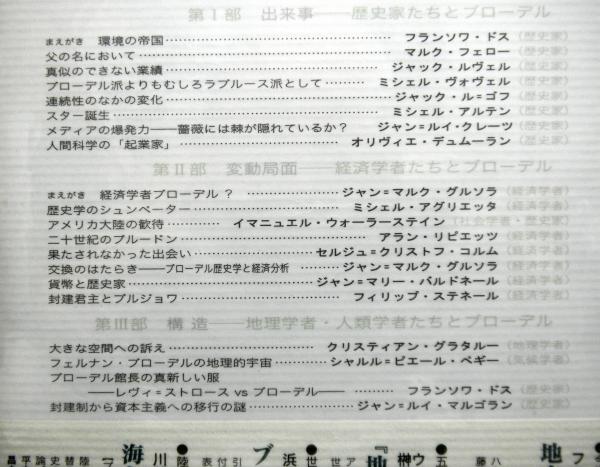 第Ⅰ部　出来事――歴史家たちとブローデル
まえがき　環境の帝国……フランソワ・ドス（歴史家）
父の名において……マルク・フェロー（歴史家）
真似のできない業績……ジャック・ルヴェル（歴史家）
ブローデル派よりもむしろラブルース派として……ミシェル・ヴォヴェル（歴史家）
連続性のなかの変化……ジャック・ル=ゴフ（歴史家）
スター誕生……ミシェル・アルテン（歴史家）
メディアの爆発力――薔薇には棘が隠れているか？……ジャン=ルイ・クレーツ（歴史家）
人間科学の「起業家」……オリヴィエ・デュムーラン（歴史家）
第Ⅱ部　変動局面――経済学者たちとブローデル
まえがき　経済学者ブローデル？……ジャン=マルク・グルソラ（経済学者）
歴史学のシュンペーター……ミシェル・アグリエッタ（経済学者）
アメリカ大陸の歓待……イマニュエル・ウォーラーステイン（社会学者・歴史家）
二十世紀のプルードン……アラン・リピエッツ（経済学者）
果たされなかった出会い……セルジュ=クリストフ・コルム（経済学者）
交換のはたらき――ブローデル歴史学と経済分析……ジャン=マルク・グルソラ（経済学者）
貨幣と歴史家……ジャン=マリー・バルドネール（経済学者）
封建君主とブルジョワ……フィリップ・ステネール（経済学者）
第Ⅲ部　構造――地理学者・人類学者たちとブローデル
大きな空間への訴え……クリスティアン・グラタルー（地理学者）
フェルナン・ブローデルの地理的宇宙……シャルル=ピエール・ペギー（気候学者）
ブローデル館長の真新しい服
――レヴィ=ストロース vs ブローデル――……フランソワ・ドス（歴史家）
封建制から資本主義への移行の謎……ジャン・ルイ・マルゴラン（歴史家）